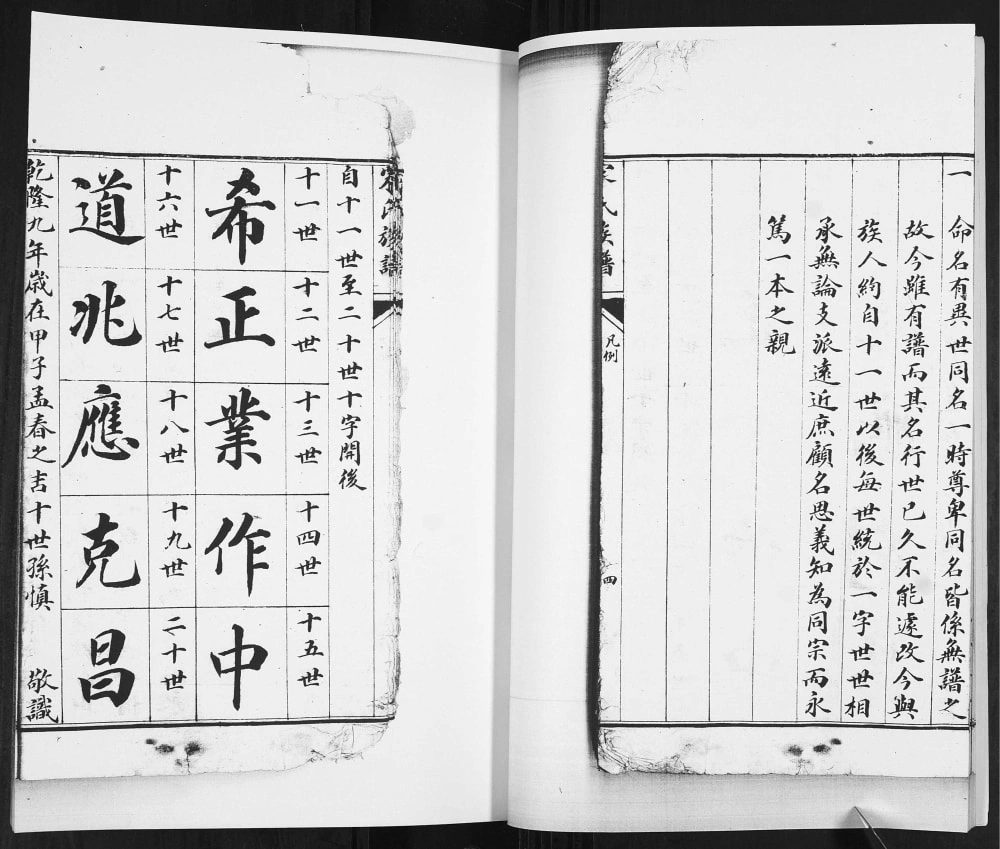 一命名有異世同名一時尊卑同名皆係無譜之
故今雖有譜而其名行世已久不能遽改今與
族人約自十一世以後每世統於一字世世相
承無論支派遠近庶顧名思義知為同宗而永
篤一本之親
氏族譜
凡例
四
氏族譜
自十一世至二十世十字開後
十一世 十二世 十三世 十四世 十五世
希 正 業 作 中
十六世 十七世 十八世 十九世 二十世
道 兆 應 克 昌
乾隆九年歲在甲子孟春之吉十世孫慎 敬識